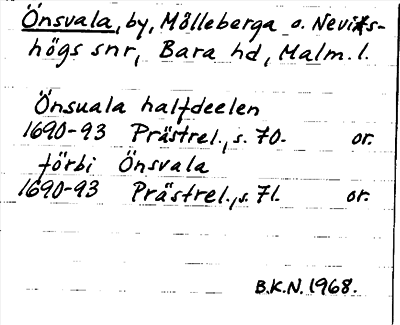 Önsvala, by, Mölleberga o. Nevis-
högs snr, Bara hd, Malm. l.
Önsuala halfdeelen
1690-93 Prästrel., s. 70. or.
förbi Önsvala
1690-93 Prästrel., s. 71. or.
B.K.N. 1968.